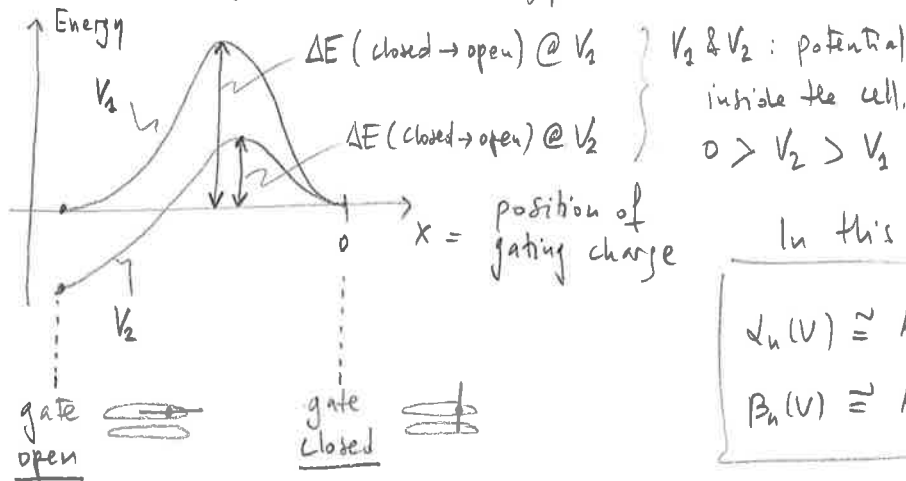 Energy
V₁
ΔE (closed → open) @ V₁
ΔE (closed → open) @ V₂
V₁ & V₂ : potential
inside the cell.
0 > V₂ > V₁
0
x = position of
gating charge
V₂
In this
αₙ(V) ≅
βₙ(V) ≅
gate
open
gate
closed